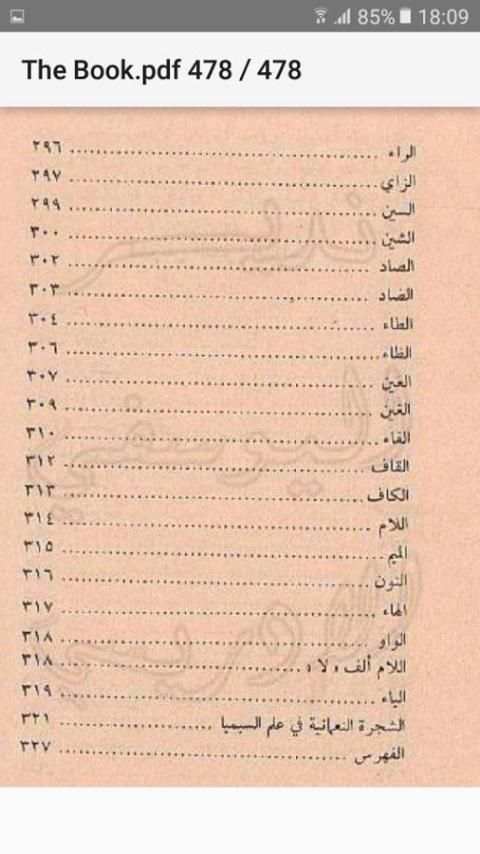 85% 18:09
The Book.pdf 478 / 478
الراء ........................................ ٢٩٦
الزاي ........................................ ٢٩٧
السين ........................................ ٢٩٩
الشين ........................................ ٣٠٠
الصاد ........................................ ٣٠٢
الضاد ........................................ ٣٠٣
الطاء ........................................ ٣٠٤
الظاء ........................................ ٣٠٦
العين ........................................ ٣٠٧
الغين ........................................ ٣٠٩
الفاء ........................................ ٣١٠
القاف ........................................ ٣١٢
الكاف ........................................ ٣١٣
اللام ........................................ ٣١٤
الميم ........................................ ٣١٥
النون ........................................ ٣١٦
الهاء ........................................ ٣١٧
الواو ........................................ ٣١٨
اللام ألف « لا » ............................ ٣١٨
الياء ........................................ ٣١٩
الشجرة النعمانية في علم السيميا .................... ٣٢١
الفهرس ........................................ ٣٢٧